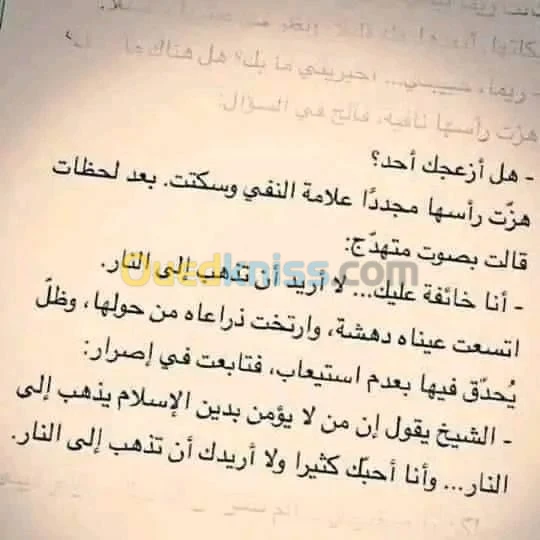 - ريما، حبيبتي... أخبريني ما بك؟ هل هناك
هزت رأسها نافية، فألح في السؤال:
- هل أزعجك أحد؟
هزّت رأسها مجددًا علامة النفي وسكتت. بعد لحظات
قالت بصوت متهدّج:
- أنا خائفة عليك... لا أريد أن تذهب إلى النار.
اتسعت عيناه دهشة، وارتخت ذراعاه من حولها، وظلّ
يُحدّق فيها بعدم استيعاب، فتابعت في إصرار:
- الشيخ يقول إن من لا يؤمن بدين الإسلام يذهب إلى
النار... وأنا أحبّك كثيرا ولا أريدك أن تذهب إلى النار.
Ouedkniss.com